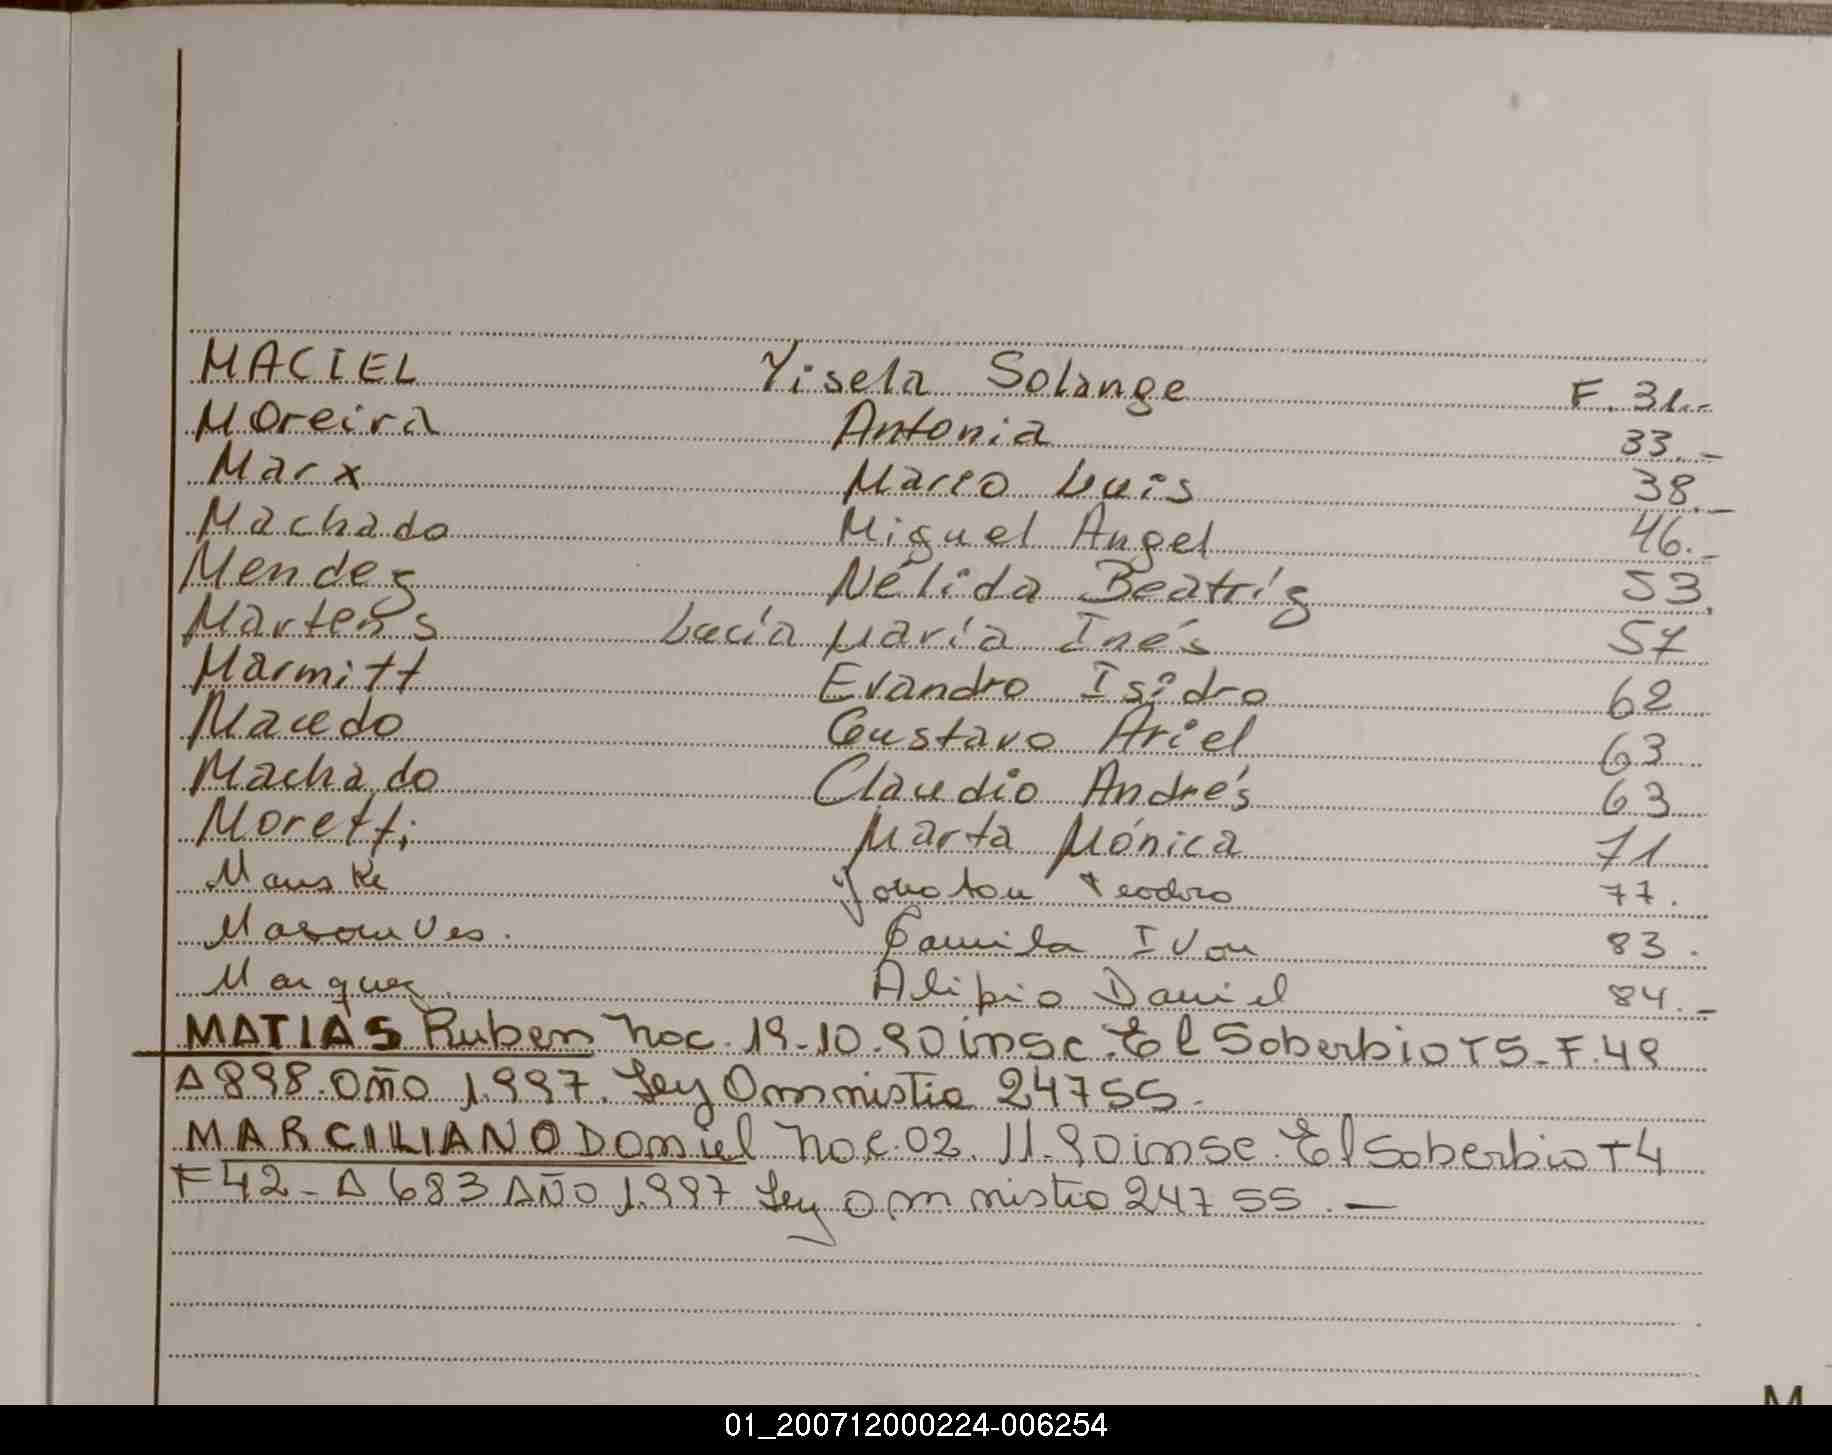 MACIEL Yisela Solange F. 31.-
Moreira Antonia 33.-
Marx Marco Luis 38.-
Machado Miguel Angel 46.-
Mendez Nélida Beatríz 53.
Martens Lucía María Inés 57
Marmitt Evandro Isidro 62
Macedo Gustavo Ariel 63
Machado Claudio Andrés 63
Moretti Marta Mónica 71
Manske Jonatan Teodoro 77.
Camila Ivon 83.
Marquez Alipio Daniel 84.-
MATIAS Ruben Nac. 19-10-90 insc. El Soberbio T5-F.49
A 898. Año 1.997. Ley Ammistia 24755.
MARCILIANO Daniel Nac. 02.11.90 insc. El Soberbio T4
F42-A 683 AÑO 1.997 Ley ammistia 24755.—
M
01_200712000224-006254